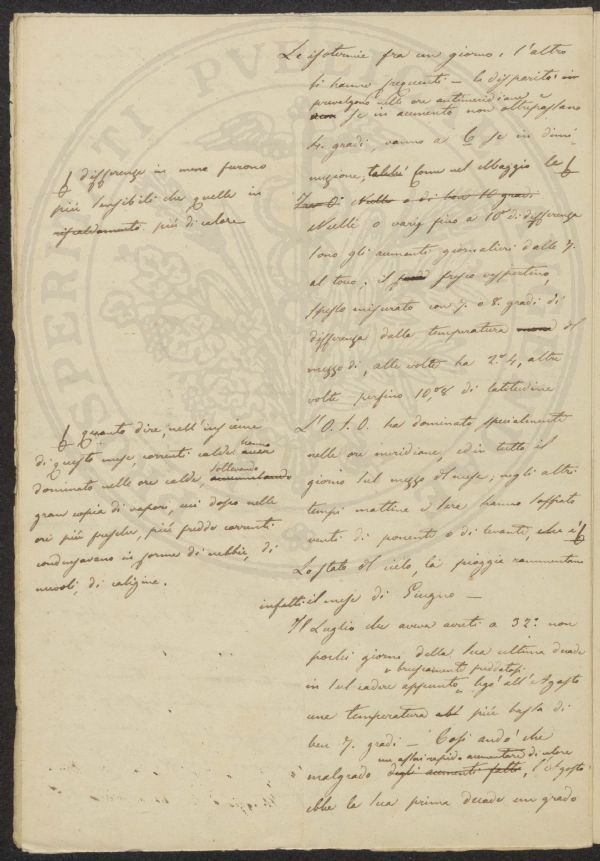 Le isotermie fra un giorno e l'altro
si hanno frequenti — le disparità in
prevalgono nelle ore antimeridiane e
se in aumento non oltrepassano
4. gradi, vanno a 6 se in dimi-
nuzione, talchè come nel Maggio le
Nulle o di
Nulle o varie fino a 10° di differenza
sono gli aumenti giornalieri dalle 7.
al tocco, il fresco vespertino,
spesso misurato con 7. o 8. gradi di
differenza dalla temperatura del
mezzo dì, alle volte ha 2.° 4, altre
volte perfino 10,°8 di latitudine
L'O. S. O. ha dominato specialmente
nelle ore meridiane, ed in tutto il
giorno sul mezzo del mese; negli altri
tempi mattine e sere hanno soffiato
venti di ponente o di levante, che è
Lo stato del cielo, la pioggia rammentano
infatti il mese di Giugno —
Il Luglio che aveva avuti a 32° non
pochi giorni della sua ultima decade
e bruscamente freddatosi
in sul cadere appunto, legò all'Agosto
una temperatura più bassa di
ben 7. gradi — Così andò che
un assai rapido aumentare di calore
malgrado degli aumenti fatti, l'Agosto
ebbe la sua prima decade un grado
differenze in meno furono
più sensibili che quelle in
riscaldamento più di calore
quanto dire, nell'insieme
di questo mese, correnti calde hanno aver
dominato nelle ore calde, sollevando accumulando
gran copia di vapori, cui dopo nelle
ore più fresche, più fredde correnti
condensavano in forma di nebbie, di
nuvoli, di caligine.
PERITI PVBLI